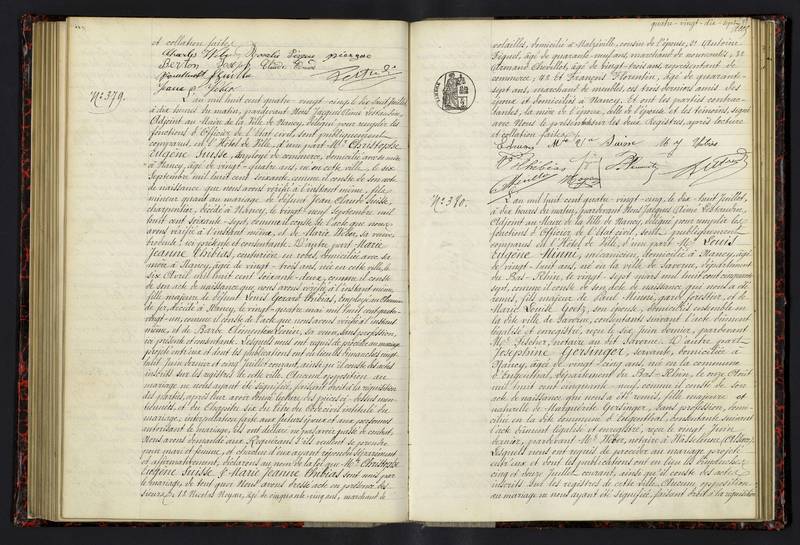 et collation faite./.
N.° 379.
L'an mil huit cent quatre-vingt-cinq, le dix-huit Juillet,
à dix heures du matin, pardevant Nous Jacques Aimé
Adjoint au Maire de la Ville de Nancy, délégué pour remplir les
fonctions d'Officier de l'état civil, sont publiquement
comparus en l'Hôtel de Ville, d'une part Mr. Christophe
Eugène Suisse, employé de commerce, domicilié avec sa mère
à Nancy, âgé de vingt-quatre ans, né en cette ville, le six
Septembre mil huit cent soixante, comme il conste de son acte
de naissance que nous avons vérifié à l'instant même, fils
mineur quant au mariage de défunt Jean Claude Suisse,
charpentier, décédé à Nancy, le vingt-neuf Septembre mil
huit cent soixante-sept, comme il conste de l'acte que nous
avons vérifié à l'instant même, et de Marie Weber, sa veuve,
ici présente et consentante. D'autre part Marie
Jeanne Thibias, couturière en robes, domiciliée avec sa
mère à Nancy, âgée de vingt-trois ans, née en cette ville, le
six Avril mil huit cent soixante-deux, comme il conste
de son acte de naissance que nous avons vérifié à l'instant même,
fille majeure de défunt Louis Gérard Thibias, employé au chemin
de fer, décédé à Nancy, le vingt-quatre mai mil huit cent quatre-
vingt-un, comme il conste de l'acte que nous avons vérifié à l'instant
même, et de Barbe Clémentine sa veuve, sans profession,
ici présente et consentante. Lesquels nous ont requis de procéder au mariage
projeté entr'eux et dont les publications ont eu lieu les Dimanches vingt-
huit Juin dernier et cinq Juillet courant, ainsi qu'il conste des actes
inscrits sur les registres de cette ville. Aucune opposition au
mariage ne nous ayant été signifiée, faisant droit à la réquisition
des parties, après leur avoir donné lecture des pièces ci-dessus men-
tionnées, et du Chapitre six du titre du Code civil intitulé du
mariage; interpellation faite aux futurs époux et aux personnes
autorisant le mariage, ils ont déclaré ne pas avoir passé de contrat.
Nous avons demandé aux Requérans s'ils veulent se prendre
pour mari et femme, et chacun d'eux ayant répondu séparément
et affirmativement, déclarons au nom de la loi que Mr. Christophe
Eugène Suisse & Marie Jeanne Thibias sont unis par
le mariage; de tout quoi Nous avons dressé acte en présence des
sieurs, 1.° Nicolas Noyar, âgé de cinquante-cinq ans, marchand de
quatre-vingt-dix-sept
volailles, domicilié à Malzéville, cousin de l'épouse, 2.° Antoine
âgé de quarante-neuf ans, marchand de nouveautés, 3.°
Armand Chevillet, âgé de vingt-trois ans, représentant de
commerce, 4.° et François Florentin, âgé de quarante-
sept ans, marchand de meubles, ces trois derniers amis des
époux et domiciliés à Nancy. Et ont les parties contrac-
tantes, la mère de l'époux, celle de l'épouse et les témoins signé
avec Nous le présent sur les deux Registres, après lecture
et collation faite./.
N.° 380.
L'an mil huit cent quatre-vingt-cinq, le dix-huit Juillet,
à dix heures du matin, pardevant Nous Jacques Aimé
Adjoint au Maire de la Ville de Nancy, délégué pour remplir les
fonctions d'Officier de l'état civil, sont publiquement
comparus en l'Hôtel de Ville, d'une part Mr. Louis
Eugène Minni, mécanicien, domicilié à Nancy, âgé
de vingt-huit ans, né en la ville de Saverne, département
du Bas-Rhin, le vingt-sept mil huit cent cinquante-
sept, comme il conste de son acte de naissance qui nous a été
remis, fils majeur de Paul Minni, garde forestier, et de
Marie Louise Goetz, son épouse, domiciliés ensemble en
la dite ville de Saverne, consentants suivant l'acte dûment
légalisé et enregistré, reçu le six Juin dernier, pardevant
Mr. Fischer, notaire au dit Saverne. D'autre part
Joséphine Gersinger, servante, domiciliée à
Nancy, âgée de vingt-cinq ans, née en la commune
d'Ergersthal, département du Bas-Rhin, le onze Août
mil huit cent cinquante-neuf, comme il conste de son
acte de naissance qui nous a été remis, fille majeure et
naturelle de Marguerite Gersinger, sans profession, domi-
ciliée en la dite commune consentante suivant
l'acte dûment légalisé et enregistré, reçu le vingt Juin
dernier, pardevant Mr. Weber, notaire à Wasselonne, (Alsace).
Lesquels nous ont requis de procéder au mariage projeté
entr'eux et dont les publications ont eu lieu les Dimanches
cinq et douze Juillet courant, ainsi qu'il conste des actes
inscrits sur les registres de cette ville. Aucune opposition
au mariage ne nous ayant été signifiée, faisant droit à la réquisition